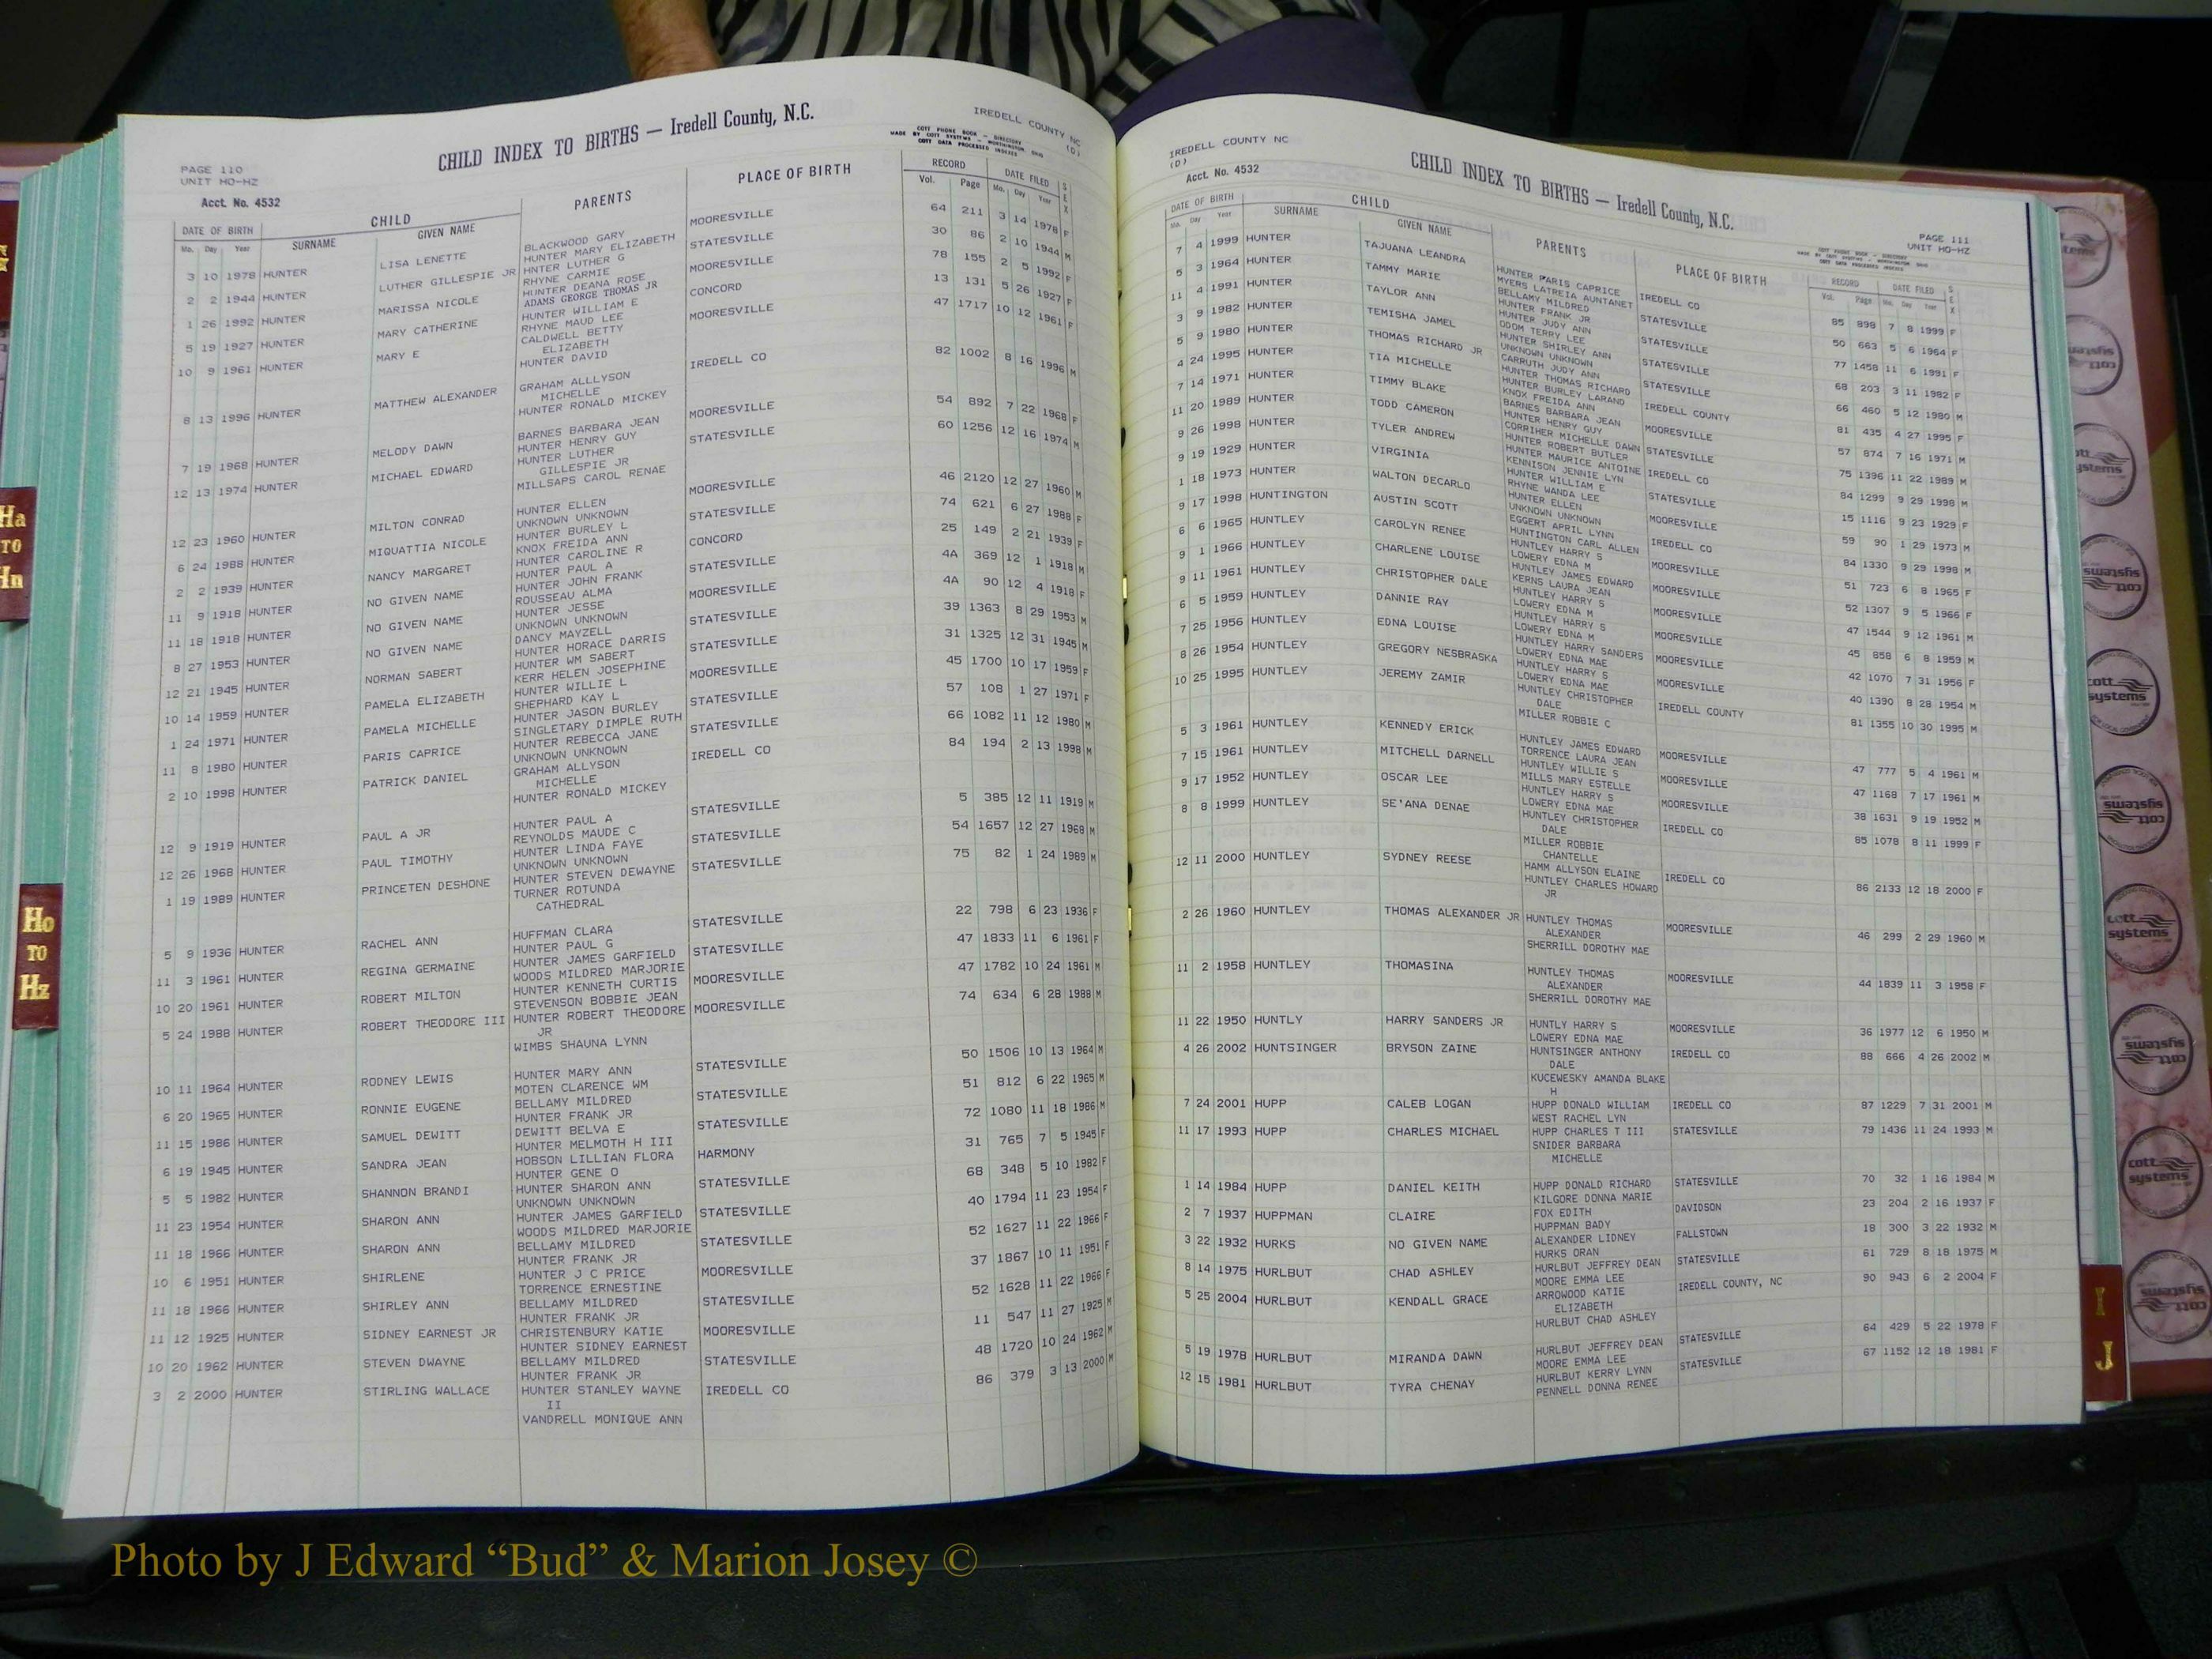 CHILD INDEX TO BIRTHS — Iredell County, N.C.
IREDELL COUNTY NC
(D)
COTT PHONE BOOK — DIRECTORY
MADE BY COTT SYSTEMS — WORTHINGTON, OHIO
COTT DATA PROCESSED INDEXES
PAGE 110
UNIT HO-HZ
Acct. No. 4532
DATE OF BIRTH CHILD PARENTS PLACE OF BIRTH RECORD DATE FILED SEX
Mo. Day Year SURNAME GIVEN NAME Vol. Page Mo. Day Year
3 10 1978 HUNTER LISA LENETTE BLACKWOOD GARY MOORESVILLE 64 211 3 14 1978 F
HUNTER MARY ELIZABETH
2 2 1944 HUNTER LUTHER GILLESPIE JR HNTER LUTHER G STATESVILLE 30 86 2 10 1944 M
RHYNE CARMIE
1 26 1992 HUNTER MARISSA NICOLE HUNTER DEANA ROSE MOORESVILLE 78 155 2 5 1992 F
ADAMS GEORGE THOMAS JR
5 19 1927 HUNTER MARY CATHERINE HUNTER WILLIAM E CONCORD 13 131 5 26 1927 F
RHYNE MAUD LEE
10 9 1961 HUNTER MARY E CALDWELL BETTY MOORESVILLE 47 1717 10 12 1961 F
ELIZABETH
HUNTER DAVID
8 13 1996 HUNTER MATTHEW ALEXANDER GRAHAM ALLLYSON IREDELL CO 82 1002 8 16 1996 M
MICHELLE
HUNTER RONALD MICKEY
7 19 1968 HUNTER MELODY DAWN BARNES BARBARA JEAN MOORESVILLE 54 892 7 22 1968 F
HUNTER HENRY GUY
12 13 1974 HUNTER MICHAEL EDWARD HUNTER LUTHER STATESVILLE 60 1256 12 16 1974 M
GILLESPIE JR
MILLSAPS CAROL RENAE
12 23 1960 HUNTER MILTON CONRAD HUNTER ELLEN MOORESVILLE 46 2120 12 27 1960 M
UNKNOWN UNKNOWN
6 24 1988 HUNTER MIQUATTIA NICOLE HUNTER BURLEY L STATESVILLE 74 621 6 27 1988 F
KNOX FREIDA ANN
2 2 1939 HUNTER NANCY MARGARET HUNTER CAROLINE R CONCORD 25 149 2 21 1939 F
HUNTER PAUL A
11 9 1918 HUNTER NO GIVEN NAME HUNTER JOHN FRANK STATESVILLE 4A 369 12 1 1918 M
ROUSSEAU ALMA
11 18 1918 HUNTER NO GIVEN NAME HUNTER JESSE MOORESVILLE 4A 90 12 4 1918 F
UNKNOWN UNKNOWN
8 27 1953 HUNTER NO GIVEN NAME DANCY MAYZELL STATESVILLE 39 1363 8 29 1953 M
HUNTER HORACE DARRIS
12 21 1945 HUNTER NORMAN SABERT HUNTER WM SABERT STATESVILLE 31 1325 12 31 1945 M
KERR HELEN JOSEPHINE
10 14 1959 HUNTER PAMELA ELIZABETH HUNTER WILLIE L MOORESVILLE 45 1700 10 17 1959 F
SHEPHARD KAY L
1 24 1971 HUNTER PAMELA MICHELLE HUNTER JASON BURLEY STATESVILLE 57 108 1 27 1971 F
SINGLETARY DIMPLE RUTH
11 8 1980 HUNTER PARIS CAPRICE HUNTER REBECCA JANE STATESVILLE 66 1082 11 12 1980 M
UNKNOWN UNKNOWN
2 10 1998 HUNTER PATRICK DANIEL GRAHAM ALLYSON IREDELL CO 84 194 2 13 1998 M
MICHELLE
HUNTER RONALD MICKEY
12 9 1919 HUNTER PAUL A JR HUNTER PAUL A STATESVILLE 5 385 12 11 1919 M
REYNOLDS MAUDE C
12 26 1968 HUNTER PAUL TIMOTHY HUNTER LINDA FAYE STATESVILLE 54 1657 12 27 1968 M
UNKNOWN UNKNOWN
1 19 1989 HUNTER PRINCETEN DESHONE HUNTER STEVEN DEWAYNE STATESVILLE 75 82 1 24 1989 M
TURNER ROTUNDA
CATHEDRAL
5 9 1936 HUNTER RACHEL ANN HUFFMAN CLARA STATESVILLE 22 798 6 23 1936 F
HUNTER PAUL G
11 3 1961 HUNTER REGINA GERMAINE HUNTER JAMES GARFIELD STATESVILLE 47 1833 11 6 1961 F
WOODS MILDRED MARJORIE
10 20 1961 HUNTER ROBERT MILTON HUNTER KENNETH CURTIS MOORESVILLE 47 1782 10 24 1961 M
STEVENSON BOBBIE JEAN
5 24 1988 HUNTER ROBERT THEODORE III HUNTER ROBERT THEODORE MOORESVILLE 74 634 6 28 1988 M
JR
WIMBS SHAUNA LYNN
10 11 1964 HUNTER RODNEY LEWIS HUNTER MARY ANN STATESVILLE 50 1506 10 13 1964 M
MOTEN CLARENCE WM
6 20 1965 HUNTER RONNIE EUGENE BELLAMY MILDRED STATESVILLE 51 812 6 22 1965 M
HUNTER FRANK JR
11 15 1986 HUNTER SAMUEL DEWITT DEWITT BELVA E STATESVILLE 72 1080 11 18 1986 M
HUNTER MELMOTH H III
6 19 1945 HUNTER SANDRA JEAN HOBSON LILLIAN FLORA HARMONY 31 765 7 5 1945 F
HUNTER GENE O
5 5 1982 HUNTER SHANNON BRANDI HUNTER SHARON ANN STATESVILLE 68 348 5 10 1982 F
UNKNOWN UNKNOWN
11 23 1954 HUNTER SHARON ANN HUNTER JAMES GARFIELD STATESVILLE 40 1794 11 23 1954 F
WOODS MILDRED MARJORIE
11 18 1966 HUNTER SHARON ANN BELLAMY MILDRED STATESVILLE 52 1627 11 22 1966 F
HUNTER FRANK JR
10 6 1951 HUNTER SHIRLENE HUNTER J C PRICE MOORESVILLE 37 1867 10 11 1951 F
TORRENCE ERNESTINE
11 18 1966 HUNTER SHIRLEY ANN BELLAMY MILDRED STATESVILLE 52 1628 11 22 1966 F
HUNTER FRANK JR
11 12 1925 HUNTER SIDNEY EARNEST JR CHRISTENBURY KATIE MOORESVILLE 11 547 11 27 1925 M
HUNTER SIDNEY EARNEST
10 20 1962 HUNTER STEVEN DWAYNE BELLAMY MILDRED STATESVILLE 48 1720 10 24 1962 M
HUNTER FRANK JR
3 2 2000 HUNTER STIRLING WALLACE HUNTER STANLEY WAYNE IREDELL CO 86 379 3 13 2000 M
II
VANDRELL MONIQUE ANN
IREDELL COUNTY NC
(D)
Acct. No. 4532
CHILD INDEX TO BIRTHS — Iredell County, N.C.
PAGE 111
UNIT HO-HZ
COTT PHONE BOOK — DIRECTORY
MADE BY COTT SYSTEMS — WORTHINGTON, OHIO
COTT DATA PROCESSED INDEXES
DATE OF BIRTH CHILD PARENTS PLACE OF BIRTH RECORD DATE FILED SEX
Mo. Day Year SURNAME GIVEN NAME Vol. Page Mo. Day Year
7 4 1999 HUNTER TAJUANA LEANDRA HUNTER PARIS CAPRICE IREDELL CO 85 898 7 8 1999 F
MYERS LATREIA AUNTANET
5 3 1964 HUNTER TAMMY MARIE BELLAMY MILDRED STATESVILLE 50 663 5 6 1964 F
HUNTER FRANK JR
11 4 1991 HUNTER TAYLOR ANN HUNTER JUDY ANN STATESVILLE 77 1458 11 6 1991 F
ODOM TERRY LEE
3 9 1982 HUNTER TEMISHA JAMEL HUNTER SHIRLEY ANN STATESVILLE 68 203 3 11 1982 F
UNKNOWN UNKNOWN
5 9 1980 HUNTER THOMAS RICHARD JR CARRUTH JUDY ANN IREDELL COUNTY 66 460 5 12 1980 M
HUNTER THOMAS RICHARD
4 24 1995 HUNTER TIA MICHELLE HUNTER BURLEY LARAND MOORESVILLE 81 435 4 27 1995 F
KNOX FREIDA ANN
7 14 1971 HUNTER TIMMY BLAKE BARNES BARBARA JEAN STATESVILLE 57 874 7 16 1971 M
HUNTER HENRY GUY
11 20 1989 HUNTER TODD CAMERON CORRIHER MICHELLE DAWN IREDELL CO 75 1396 11 22 1989 M
HUNTER ROBERT BUTLER
9 26 1998 HUNTER TYLER ANDREW HUNTER MAURICE ANTOINE STATESVILLE 84 1299 9 29 1998 M
KENNISON JENNIE LYN
9 19 1929 HUNTER VIRGINIA HUNTER WILLIAM E MOORESVILLE 15 1116 9 23 1929 F
RHYNE WANDA LEE
1 18 1973 HUNTER WALTON DECARLO HUNTER ELLEN IREDELL CO 59 90 1 29 1973 M
UNKNOWN UNKNOWN
9 17 1998 HUNTINGTON AUSTIN SCOTT EGGERT APRIL LYNN MOORESVILLE 84 1330 9 29 1998 M
HUNTINGTON CARL ALLEN
6 6 1965 HUNTLEY CAROLYN RENEE HUNTLEY HARRY S MOORESVILLE 51 723 6 8 1965 F
LOWERY EDNA M
9 1 1966 HUNTLEY CHARLENE LOUISE HUNTLEY JAMES EDWARD MOORESVILLE 52 1307 9 5 1966 F
KERNS LAURA JEAN
9 11 1961 HUNTLEY CHRISTOPHER DALE HUNTLEY HARRY S MOORESVILLE 47 1544 9 12 1961 M
LOWERY EDNA M
6 5 1959 HUNTLEY DANNIE RAY HUNTLEY HARRY S MOORESVILLE 45 858 6 8 1959 M
LOWERY EDNA M
7 25 1956 HUNTLEY EDNA LOUISE HUNTLEY HARRY SANDERS MOORESVILLE 42 1070 7 31 1956 F
LOWERY EDNA MAE
8 26 1954 HUNTLEY GREGORY NESBRASKA HUNTLEY HARRY S IREDELL COUNTY 40 1390 8 28 1954 M
LOWERY EDNA MAE
10 25 1995 HUNTLEY JEREMY ZAMIR HUNTLEY CHRISTOPHER 81 1355 10 30 1995 M
DALE
MILLER ROBBIE C
5 3 1961 HUNTLEY KENNEDY ERICK HUNTLEY JAMES EDWARD MOORESVILLE 47 777 5 4 1961 M
TORRENCE LAURA JEAN
7 15 1961 HUNTLEY MITCHELL DARNELL HUNTLEY WILLIE S MOORESVILLE 47 1168 7 17 1961 M
MILLS MARY ESTELLE
9 17 1952 HUNTLEY OSCAR LEE HUNTLEY HARRY S MOORESVILLE 38 1631 9 19 1952 M
LOWERY EDNA MAE
8 8 1999 HUNTLEY SE'ANA DENAE HUNTLEY CHRISTOPHER IREDELL CO 85 1078 8 11 1999 F
DALE
MILLER ROBBIE
CHANTELLE
12 11 2000 HUNTLEY SYDNEY REESE HAMM ALLYSON ELAINE IREDELL CO 86 2133 12 18 2000 F
HUNTLEY CHARLES HOWARD
JR
2 26 1960 HUNTLEY THOMAS ALEXANDER JR HUNTLEY THOMAS MOORESVILLE 46 299 2 29 1960 M
ALEXANDER
SHERRILL DOROTHY MAE
11 2 1958 HUNTLEY THOMASINA HUNTLEY THOMAS MOORESVILLE 44 1839 11 3 1958 F
ALEXANDER
SHERRILL DOROTHY MAE
11 22 1950 HUNTLY HARRY SANDERS JR HUNTLY HARRY S MOORESVILLE 36 1977 12 6 1950 M
LOWERY EDNA MAE
4 26 2002 HUNTSINGER BRYSON ZAINE HUNTSINGER ANTHONY IREDELL CO 88 666 4 26 2002 M
DALE
KUCEWESKY AMANDA BLAKE
H
7 24 2001 HUPP CALEB LOGAN HUPP DONALD WILLIAM IREDELL CO 87 1229 7 31 2001 M
WEST RACHEL LYN
11 17 1993 HUPP CHARLES MICHAEL HUPP CHARLES T III STATESVILLE 79 1436 11 24 1993 M
SNIDER BARBARA
MICHELLE
1 14 1984 HUPP DANIEL KEITH HUPP DONALD RICHARD STATESVILLE 70 32 1 16 1984 M
KILGORE DONNA MARIE
2 7 1937 HUPPMAN CLAIRE FOX EDITH DAVIDSON 23 204 2 16 1937 F
HUPPMAN BADY
3 22 1932 HURKS NO GIVEN NAME ALEXANDER LIDNEY FALLSTOWN 18 300 3 22 1932 M
HURKS ORAN
8 14 1975 HURLBUT CHAD ASHLEY HURLBUT JEFFREY DEAN STATESVILLE 61 729 8 18 1975 M
MOORE EMMA LEE
5 25 2004 HURLBUT KENDALL GRACE ARROWOOD KATIE IREDELL COUNTY, NC 90 943 6 2 2004 F
ELIZABETH
HURLBUT CHAD ASHLEY
5 19 1978 HURLBUT MIRANDA DAWN HURLBUT JEFFREY DEAN STATESVILLE 64 429 5 22 1978 F
MOORE EMMA LEE
12 15 1981 HURLBUT TYRA CHENAY HURLBUT KERRY LYNN STATESVILLE 67 1152 12 18 1981 F
PENNELL DONNA RENEE
Ha
TO
Hn
Ho
TO
Hz
I
J
cott
systems
Photo by J Edward “Bud” & Marion Josey ©